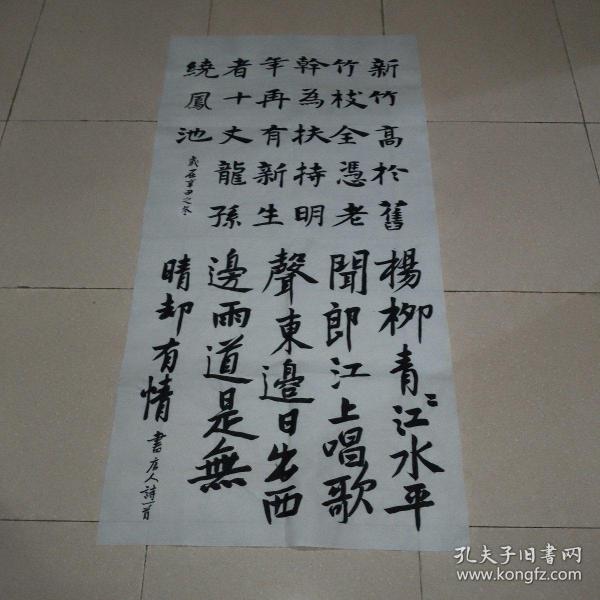 新竹高於舊
竹枝全憑老
幹為扶持明
年再有新生
者十丈龍孫
繞鳳池
歲在之冬
楊柳青〻江水平
聞郎江上唱歌
聲東邊日出西
邊雨道是無
晴却有情
書唐人詩一首
孔夫子旧书网
www.kongfz.com